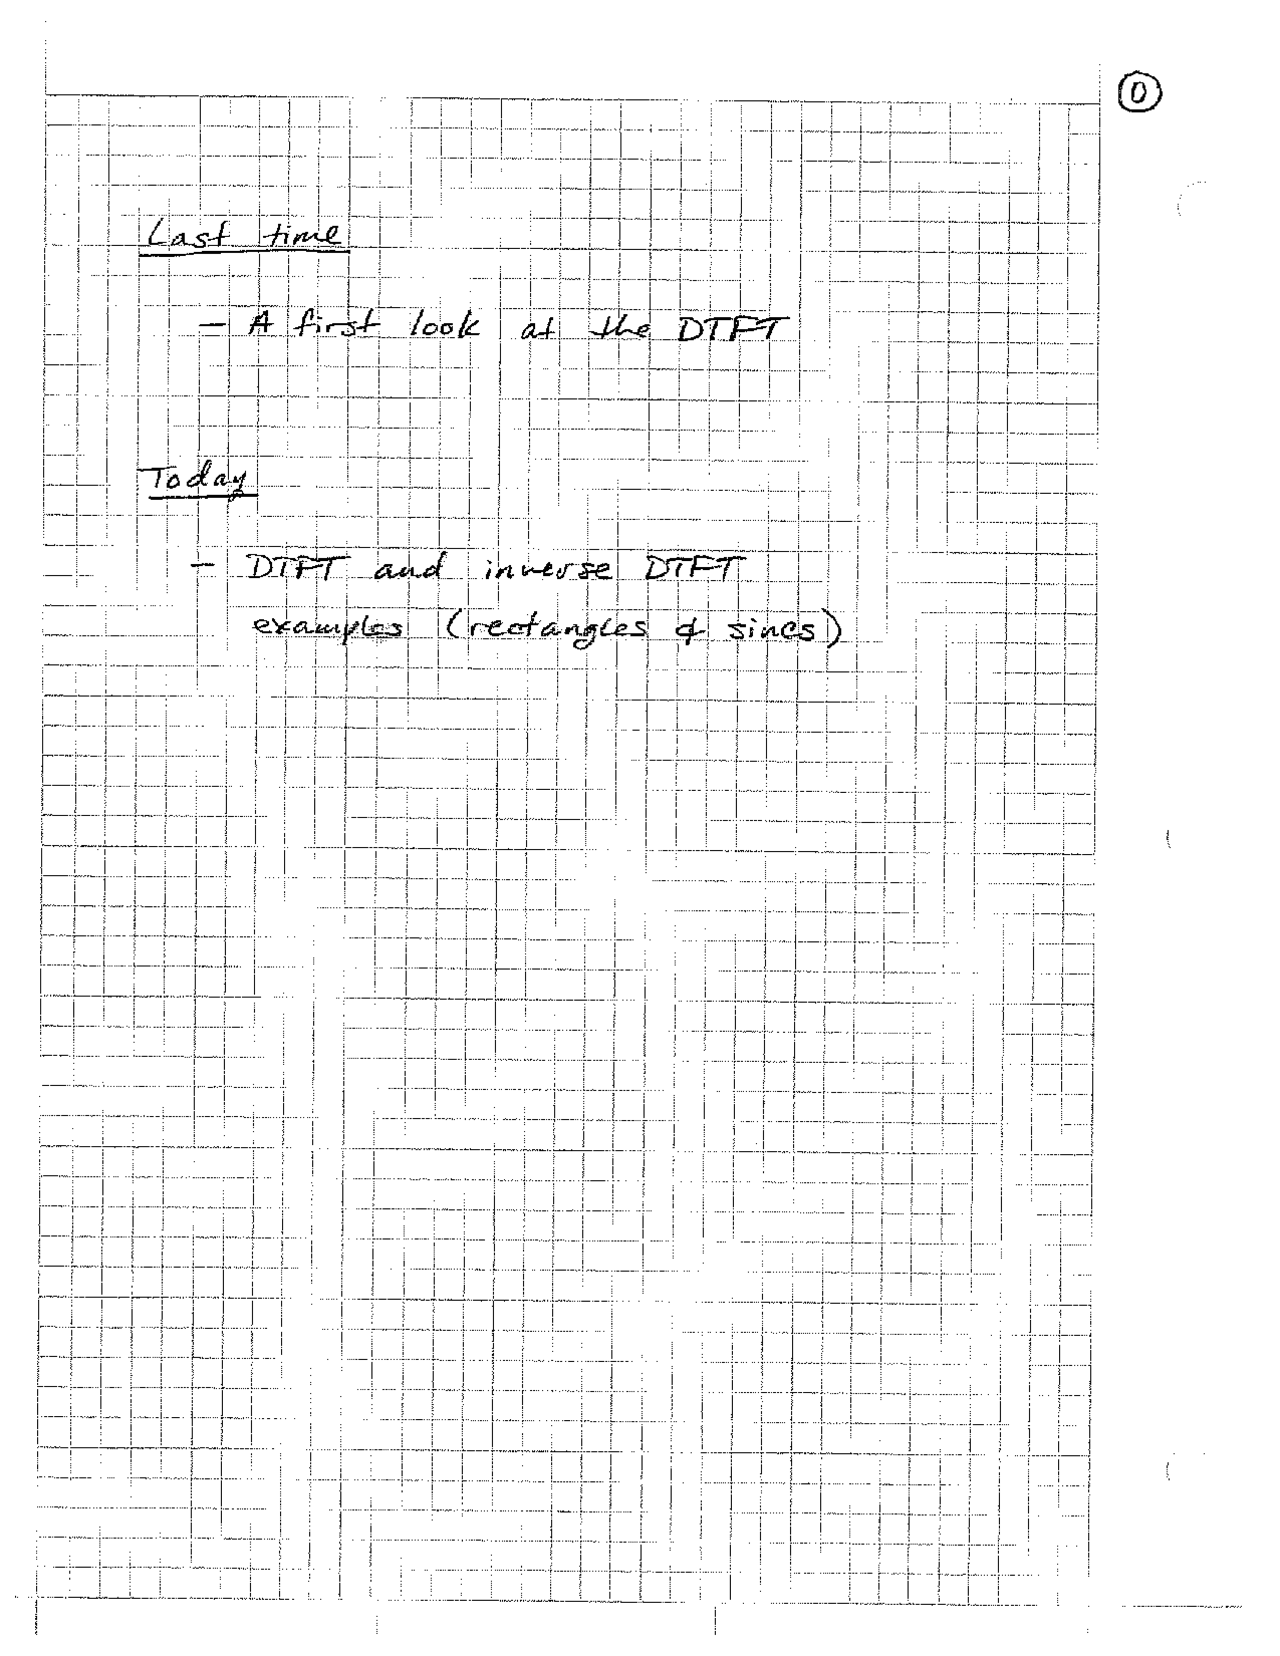 0
Last time
- A first look at the DTFT
Today
- DTFT and inverse DTFT
examples (rectangles & sincs)